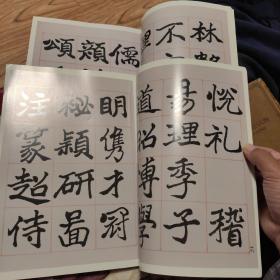 林
不
儒
穎
頌
悅礼稽
易理季子
道昭博學
明儁才冠
秘穎研啚
注篆超侍